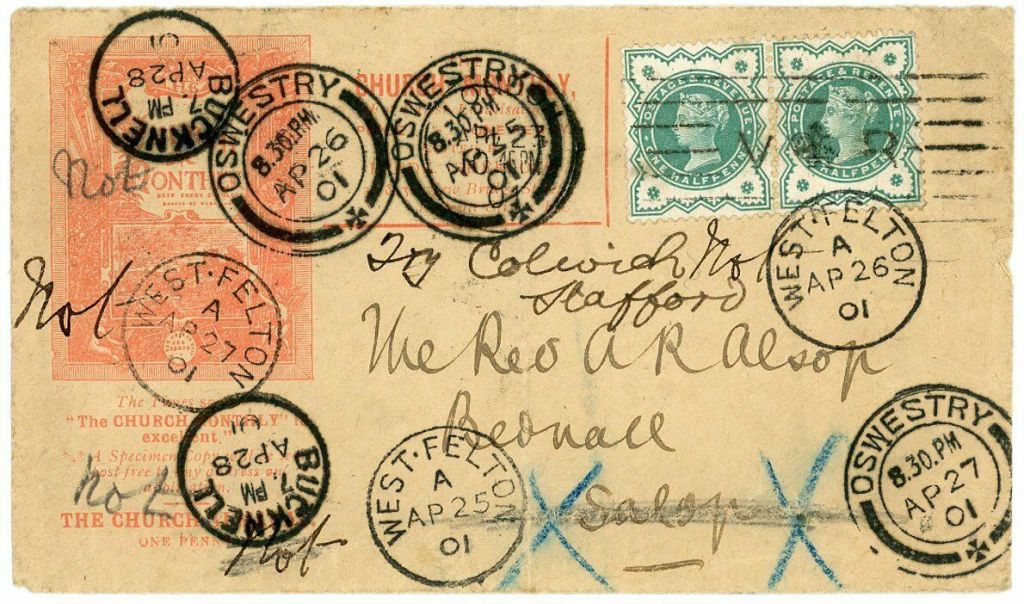 BUCKNELL
7. PM
AP 28
01
OSWESTRY
8.30.PM.
AP 26
01
CHURCH MONTHLY,
OSWESTRY
8.30.PM.
AP 25
01
POSTAGE & REVENUE
ONE HALFPENNY
POSTAGE & REVENUE
ONE HALFPENNY
V R
Not
WEST·FELTON
A
AP 26
01
Try Colwich No
Stafford
Not
WEST·FELTON
A
AP 27
01
The Rev A R Alsop
Bednall
Salop
The Times
"The CHURCH MONTHLY"
excellent."
*** A Specimen Copy
post free to any address on
application.
THE CHURCH
ONE PENNY
BUCKNELL
7. PM
AP 28
01
Not
Not
WEST·FELTON
A
AP 25
01
OSWESTRY
8.30.PM
AP 27
01